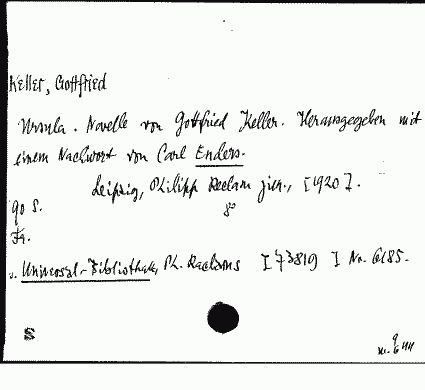 Keller, Gottfried
Ursula. Novelle von Gottfried Keller. Herausgegeben mit
einem Nachwort von Carl Enders.
Leipzig, Philipp Reclam jun., [1920].
90 S. 8°
Fa.
v. Universal-Bibliothek, Ph. Reclams [73819] Nr. 6185.
S